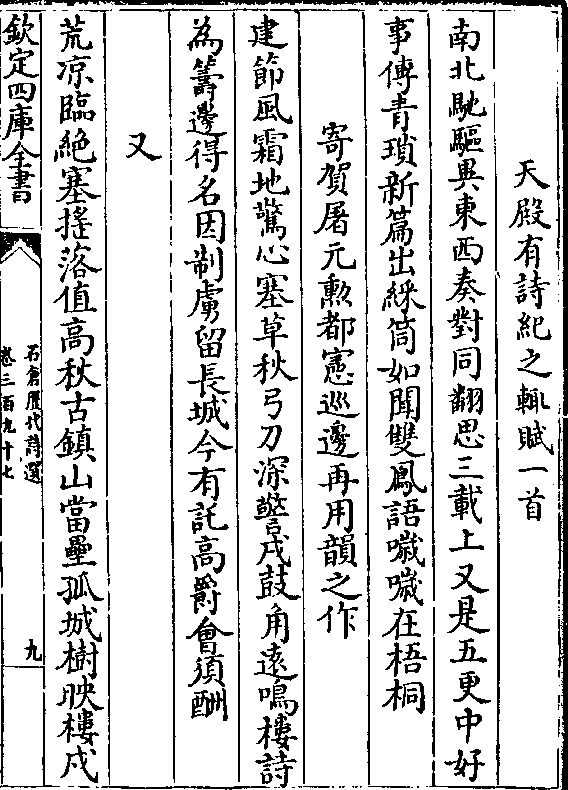 天殿有詩紀之輙賦一首
南北馳驅與東西奏對同翻思三載上又是五更中好
事傳青瑣新篇出綵筒如聞雙鳳語噦噦在梧桐
寄賀屠元勲都憲巡邊再用韻之作
建節風霜地驚心塞草秋弓刀深警戍鼓角遠鳴樓詩
為籌邊得名因制虜留長城今有託高爵會須酬
又
荒凉臨絶塞搖落值高秋古鎮山當壘孤城樹映樓戍
欽定四庫全書
石倉歷代詩選
卷三百九十七
九